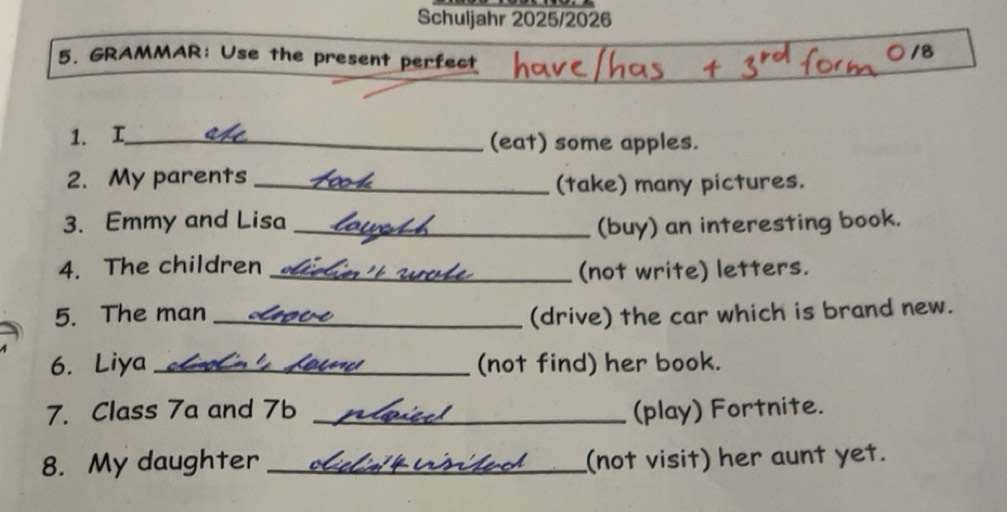 Schuljahr 2025/2026
5. GRAMMAR: Use the present perfect have/has + 3rd form 0/8
1. I ate (eat) some apples.
2. My parents took (take) many pictures.
3. Emmy and Lisa (buy) an interesting book.
4. The children didin't wrote (not write) letters.
5. The man drove (drive) the car which is brand new.
6. Liya didin't found (not find) her book.
7. Class 7a and 7b plaied (play) Fortnite.
8. My daughter didin't visited (not visit) her aunt yet.